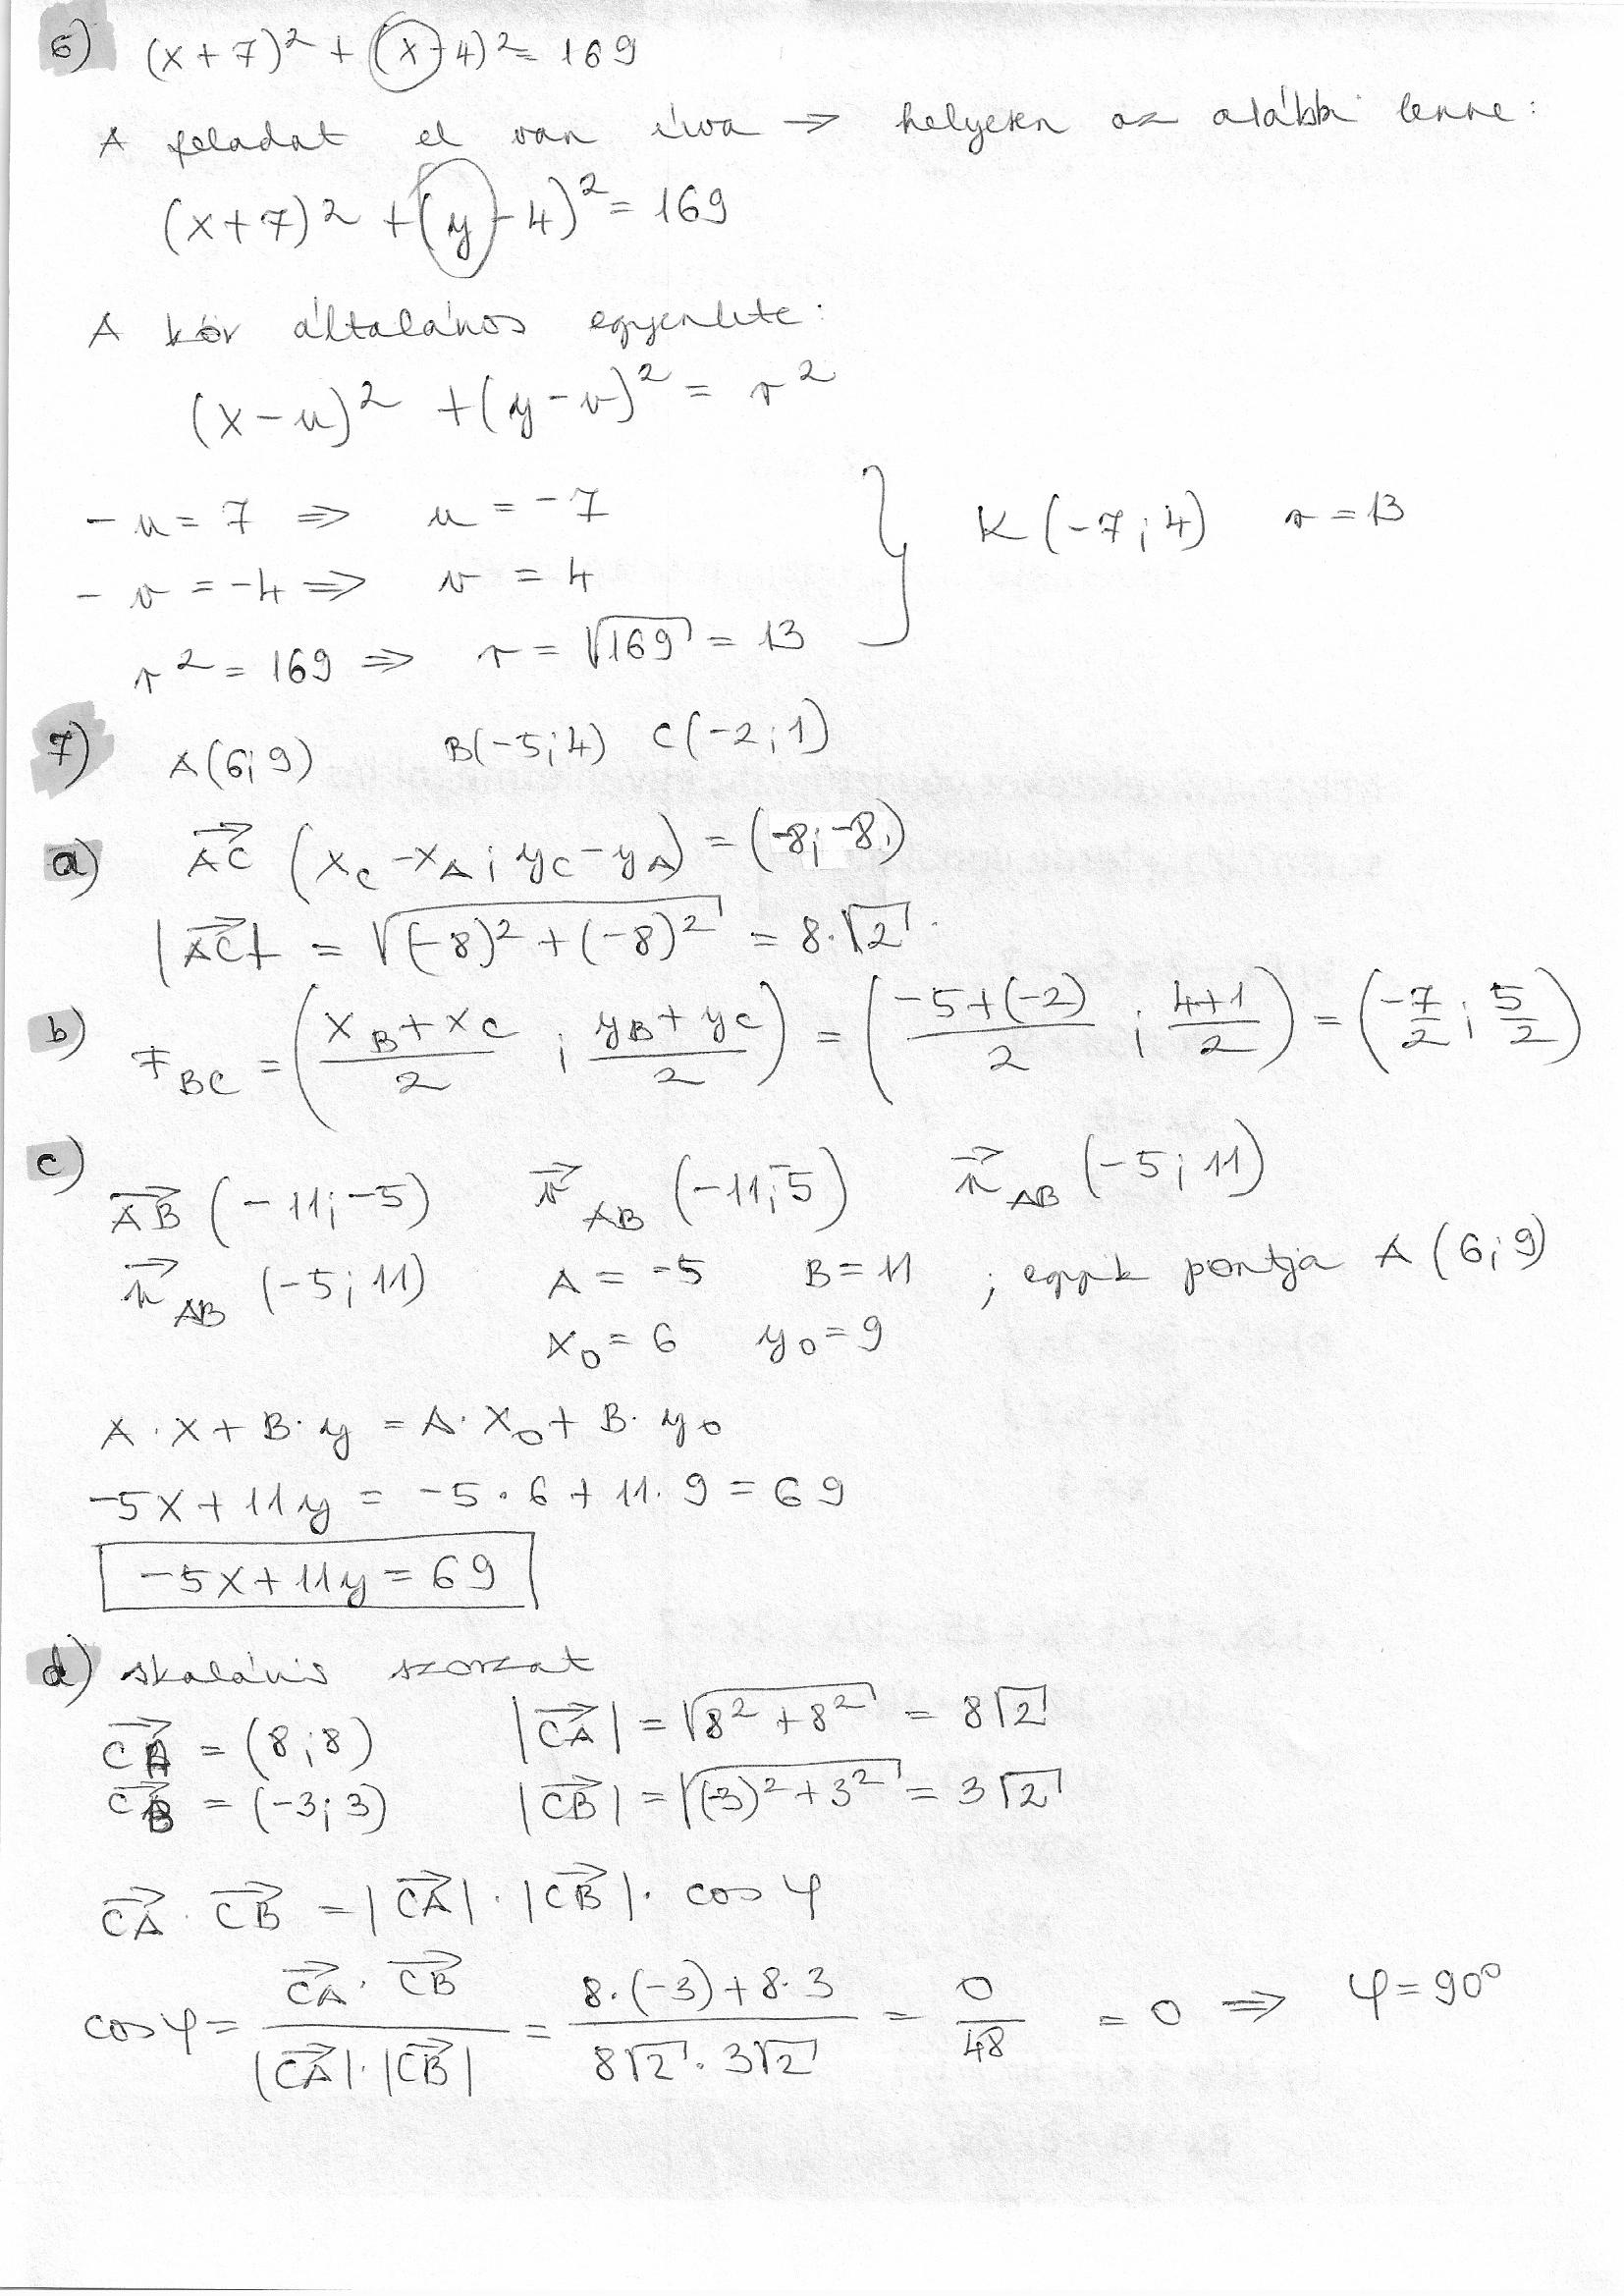 6) (x+7)² + (x-4)² = 169
A feladat el van írva ⇒ helyesen az alábbi lenne:
(x+7)² + (y-4)² = 169
A kör általános egyenlete:
(x-u)² + (y-v)² = r²
-u = 7 ⇒ u = -7
-v = -4 ⇒ v = 4
r² = 169 ⇒ r = √169 = 13
K(-7;4) r = 13
7) A(6;9) B(-5;4) C(-2;1)
a) AC→ (x_C - x_A ; y_C - y_A) = (-8;-8)
|AC→| = √((-8)² + (-8)²) = 8·√2
b) F_BC = ((x_B + x_C)/2 ; (y_B + y_C)/2) = ((-5+(-2))/2 ; (4+1)/2) = (-7/2 ; 5/2)
c) AB→ (-11;-5) v→_AB (-11;-5) n→_AB (-5;11)
n→_AB (-5;11) A = -5 B = 11 ; egyik pontja A(6;9)
x₀ = 6 y₀ = 9
A·x + B·y = A·x₀ + B·y₀
-5x + 11y = -5·6 + 11·9 = 69
-5x + 11y = 69
d) skaláris szorzat
CA→ = (8;8) |CA→| = √(8² + 8²) = 8√2
CB→ = (-3;3) |CB→| = √((-3)² + 3²) = 3√2
CA→ · CB→ = |CA→| · |CB→| · cos φ
cos φ = (CA→ · CB→)/(|CA→|·|CB→|) = (8·(-3) + 8·3)/(8√2 · 3√2) = 0/48 = 0 ⇒ φ = 90°